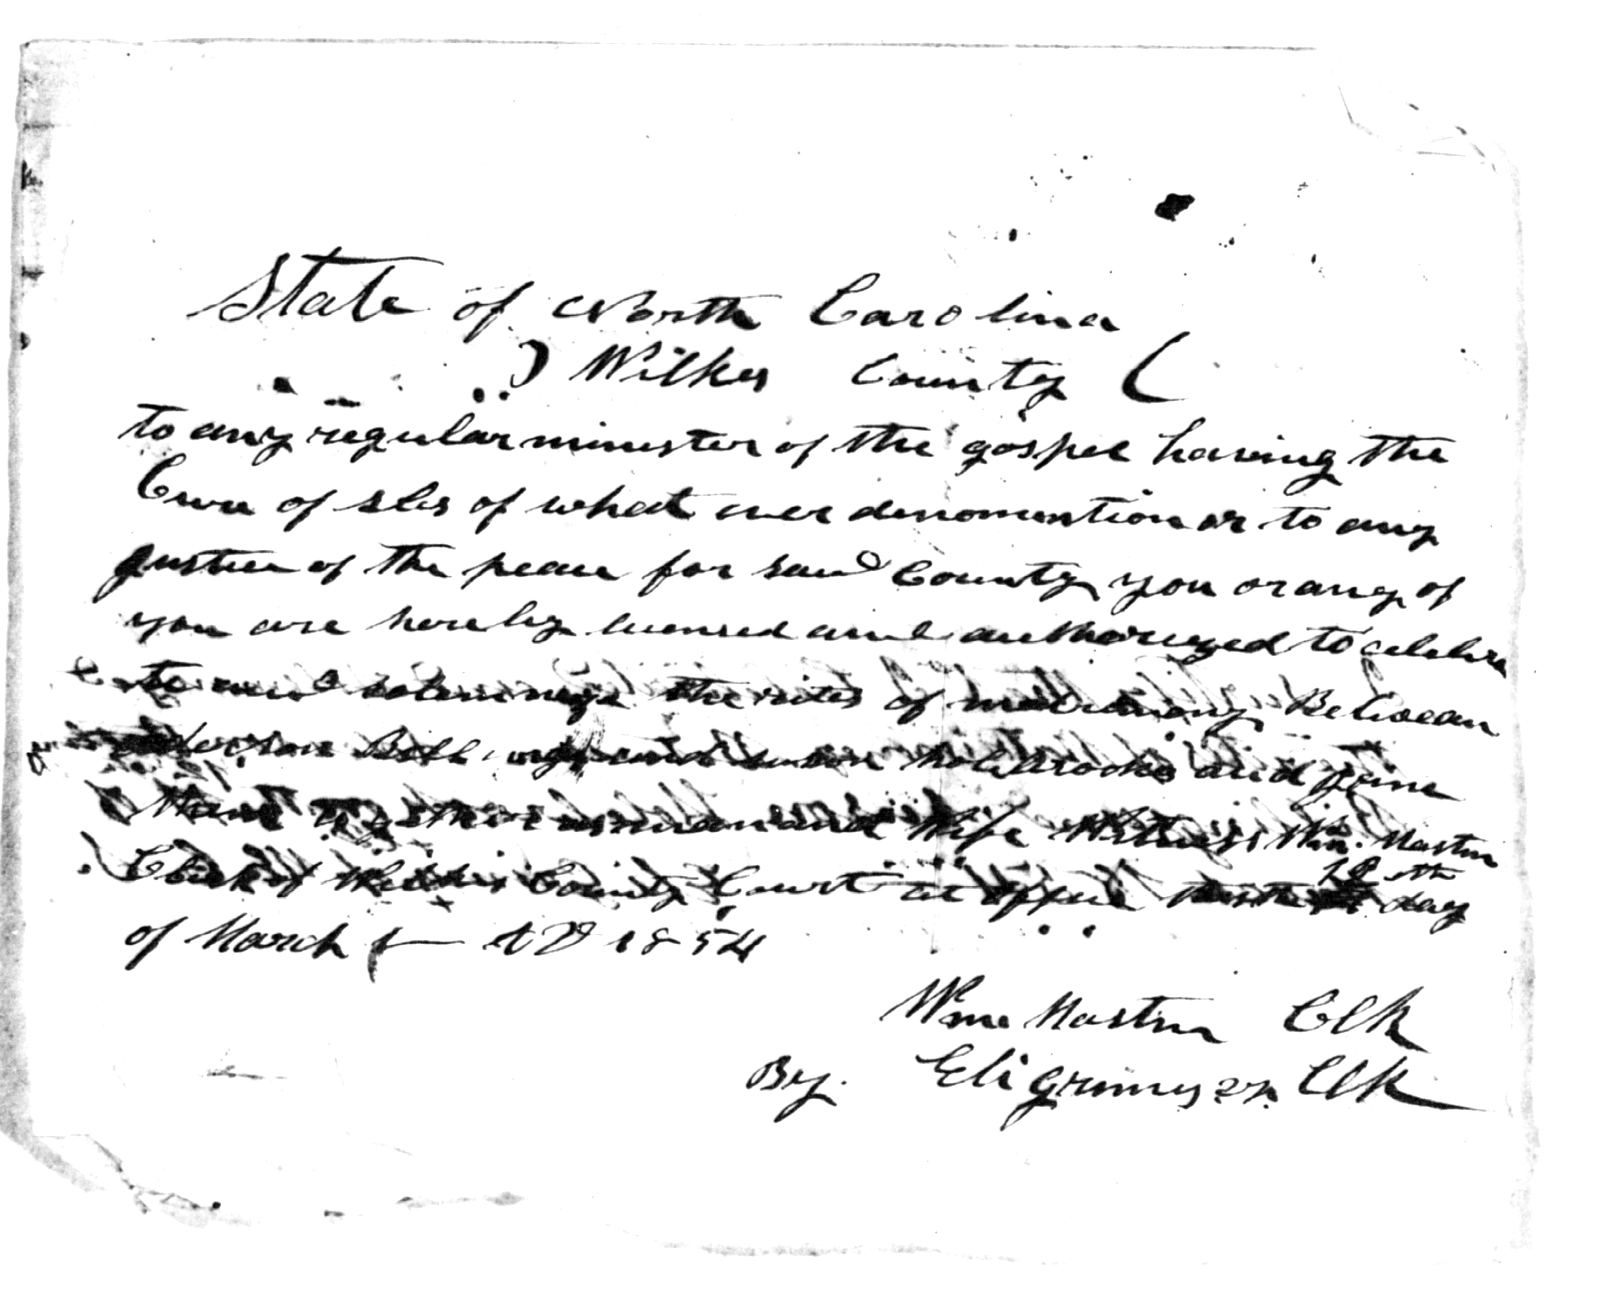 State of North Carolina
) Wilkes County (
to any regular minister of the gospel having the
Cure of sls of what ever denomention or to any
justice of the peace for said County you or any of
you are hereby licensed and authorized to celebra
te and solemnize the rites of matrimony Between
Bell and Susan Holebrooks and joine
them together as man and Wife Witness Wm. Mastin
Clerk of Wilkes County Court at office this the 28 eth day
of March A D 1854
Wm Mastin Clk
By. Eli grimes Clk